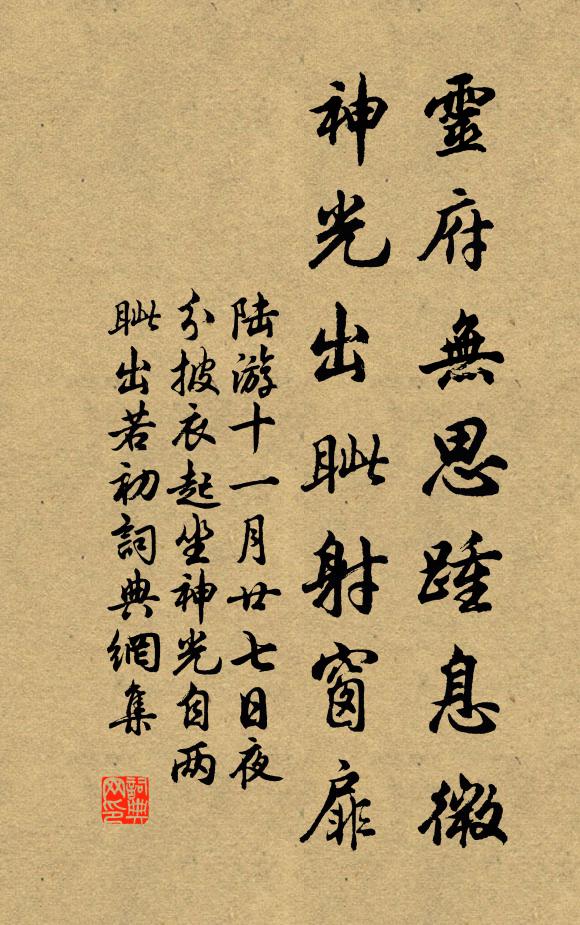 靈府無思踵息微
神光出眦射窗扉
陆游十一月廿七日夜
分披衣起坐神光自两
眦出若初詞典網集
詞典网印